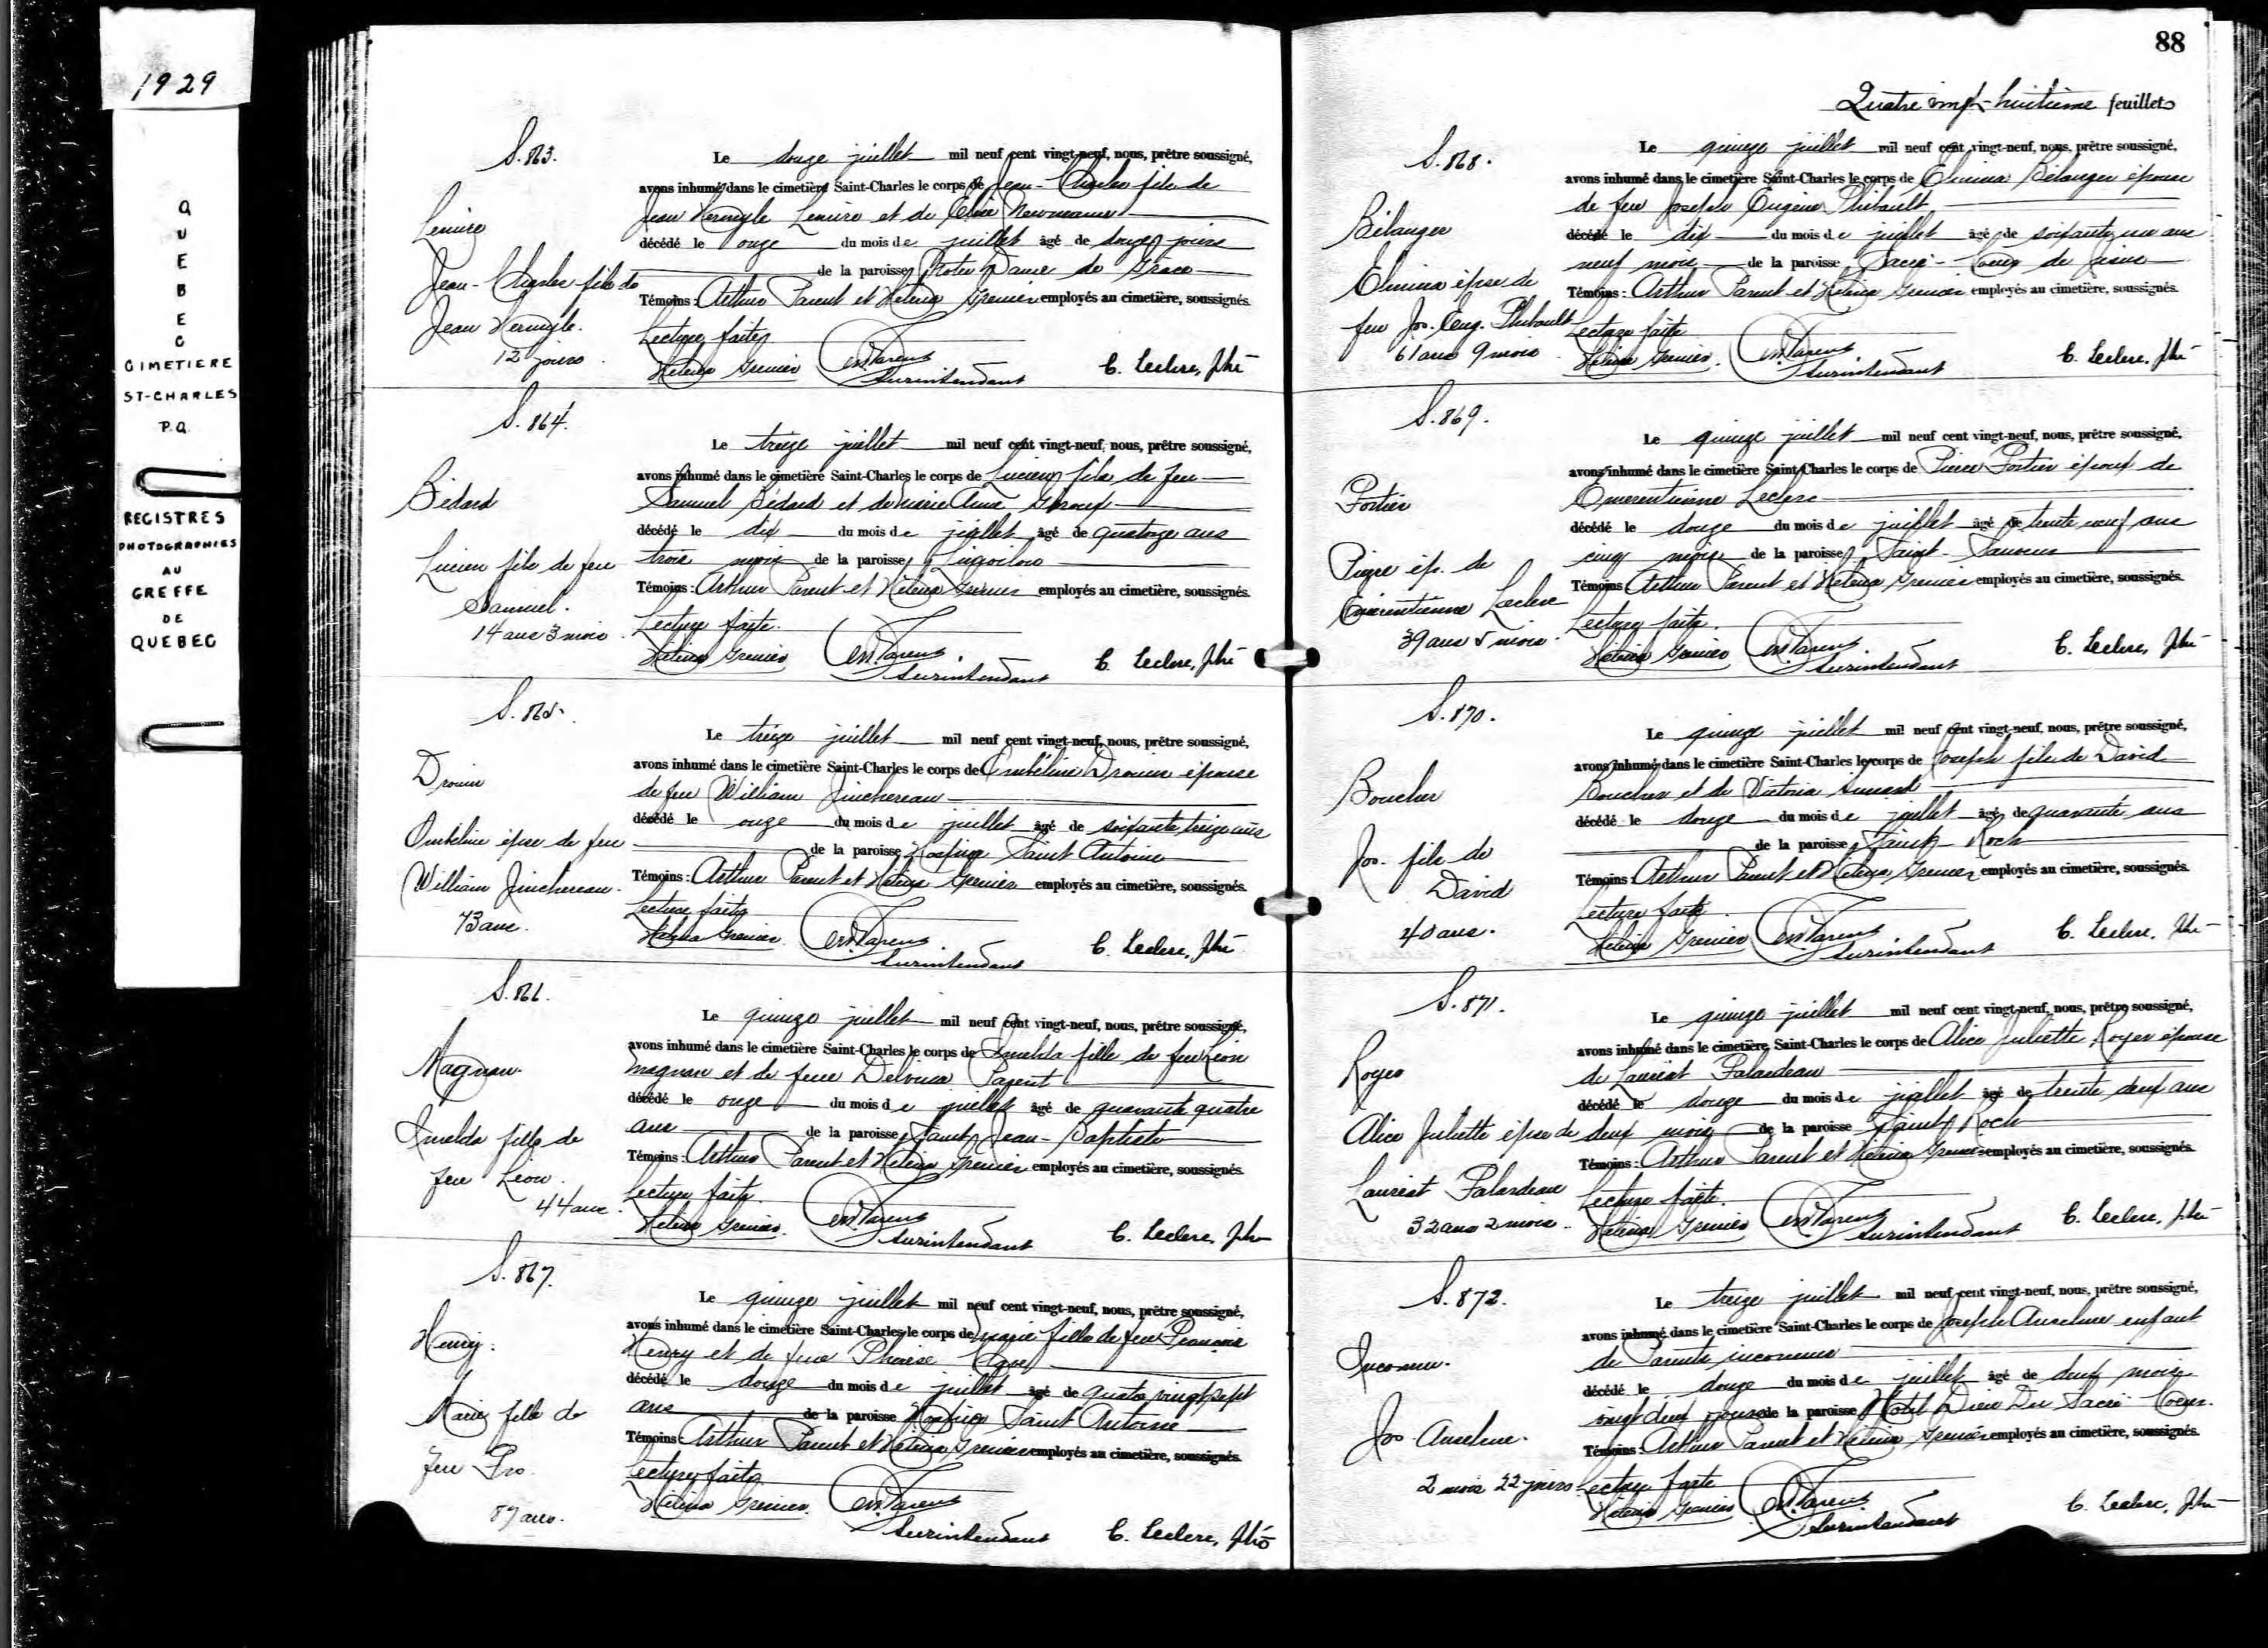 1929
QUEBEC
CIMETIERE
ST-CHARLES
P.Q.
REGISTRES
PHOTOGRAPHIES
AU
GREFFE
DE
QUEBEC
S. 863.
Lemire
Jean-Charles fils de
Jean Hermyle.
12 jours
Le douze juillet mil neuf cent vingt-neuf, nous, prêtre soussigné,
avons inhumé dans le cimetière Saint-Charles le corps de Jean-Charles fils de
Jean Hermyle Lemire et de
décédé le onze du mois de juillet âgé de douze jours
de la paroisse Notre Dame de Grâce
Témoins: Arthur Parent et Helena Grenier employés au cimetière, soussignés.
Lecture faite
Helena Grenier Parent
Surintendant C. Leclerc, ptre
S. 864.
Bédard
Lucien fils de feu
Samuel.
14 ans 3 mois
Le treize juillet mil neuf cent vingt-neuf, nous, prêtre soussigné,
avons inhumé dans le cimetière Saint-Charles le corps de Lucien fils de feu
Samuel Bédard et de Marie Anne Giroux
décédé le dix du mois de juillet âgé de quatorze ans
trois mois de la paroisse Limoilou
Témoins: Arthur Parent et Helena Grenier employés au cimetière, soussignés.
Lecture faite.
Helena Grenier Parent
Surintendant C. Leclerc, ptre
S. 865.
Drouin
Ombéline épse de feu
William Jinchereau.
73 ans.
Le treize juillet mil neuf cent vingt-neuf, nous, prêtre soussigné,
avons inhumé dans le cimetière Saint-Charles le corps de Ombéline Drouin épouse
de feu William Jinchereau
décédé le onze du mois de juillet âgé de soixante treize ans
de la paroisse Hospice Saint Antoine
Témoins: Arthur Parent et Helena Grenier employés au cimetière, soussignés.
Lecture faite
Helena Grenier Parent
Surintendant C. Leclerc, ptre
S. 866.
Magnan
Imelda fille de
feu Léon.
44 ans.
Le quinze juillet mil neuf cent vingt-neuf, nous, prêtre soussigné,
avons inhumé dans le cimetière Saint-Charles le corps de Imelda fille de feu Léon
Magnan et de feue
décédé le onze du mois de juillet âgé de quarante quatre
ans de la paroisse Saint Jean-Baptiste
Témoins: Arthur Parent et Helena Grenier employés au cimetière, soussignés.
Lecture faite.
Helena Grenier Parent
Surintendant C. Leclerc, ptre
S. 867.
Henry.
Marie fille de
feu Frs.
87 ans.
Le quinze juillet mil neuf cent vingt-neuf, nous, prêtre soussigné,
avons inhumé dans le cimetière Saint-Charles le corps de Marie fille de feu François
Henry et de feue
décédé le douze du mois de juillet âgé de quatre vingt sept
ans de la paroisse Hospice Saint Antoine
Témoins: Arthur Parent et Helena Grenier employés au cimetière, soussignés.
Lecture faite
Helena Grenier Parent
Surintendant C. Leclerc, ptre
88
Quatre vingt-huitième feuillet
S. 868.
Bélanger
Elmina épse de
feu Jos. Eug. Thibault
61 ans 9 mois
Le quinze juillet mil neuf cent vingt-neuf, nous, prêtre soussigné,
avons inhumé dans le cimetière Saint-Charles le corps de Elmina Bélanger épouse
de feu Joseph Eugène Thibault
décédé le dix du mois de juillet âgé de soixante un ans
neuf mois de la paroisse Sacré-Coeur de Jésus
Témoins: Arthur Parent et Helena Grenier employés au cimetière, soussignés.
Lecture faite
Helena Grenier. Parent
Surintendant C. Leclerc, ptre
S. 869.
Portier
Pierre ép. de
Emérentienne Leclerc
39 ans 5 mois.
Le quinze juillet mil neuf cent vingt-neuf, nous, prêtre soussigné,
avons inhumé dans le cimetière Saint-Charles le corps de Pierre Portier époux de
Emerentienne Leclerc
décédé le douze du mois de juillet âgé de trente neuf ans
cinq mois de la paroisse Saint-Sauveur
Témoins: Arthur Parent et Helena Grenier employés au cimetière, soussignés.
Lecture faite.
Helena Grenier Parent
Surintendant C. Leclerc, ptre
S. 870.
Boucher
Jos. fils de
David
40 ans.
Le quinze juillet mil neuf cent vingt-neuf, nous, prêtre soussigné,
avons inhumé dans le cimetière Saint-Charles le corps de Joseph fils de David
Boucher et de Victoria Simard
décédé le douze du mois de juillet âgé de quarante ans
de la paroisse Saint-Roch
Témoins: Arthur Parent et Helena Grenier employés au cimetière, soussignés.
Lecture faite.
Helena Grenier Parent
Surintendant C. Leclerc, ptre
S. 871.
Royer
Alice Juliette épse de
Lauréat Falardeau
32 ans 2 mois.
Le quinze juillet mil neuf cent vingt-neuf, nous, prêtre soussigné,
avons inhumé dans le cimetière Saint-Charles le corps de Alice Juliette Royer épouse
de Lauréat Falardeau
décédé le douze du mois de juillet âgé de trente deux ans
deux mois de la paroisse Saint Roch
Témoins: Arthur Parent et Helena Grenier employés au cimetière, soussignés.
Lecture faite.
Helena Grenier Parent
Surintendant C. Leclerc, ptre
S. 872.
Inconnu.
Jos. Anselme.
2 mois 22 jours
Le treize juillet mil neuf cent vingt-neuf, nous, prêtre soussigné,
avons inhumé dans le cimetière Saint-Charles le corps de Joseph Anselme enfant
de Parents inconnus
décédé le douze du mois de juillet âgé de deux mois
vingt deux jours de la paroisse Hotel Dieu Du Sacré-Coeur.
Témoins: Arthur Parent et Helena Grenier employés au cimetière, soussignés.
Lecture faite
Helena Grenier Parent
Surintendant C. Leclerc, ptre